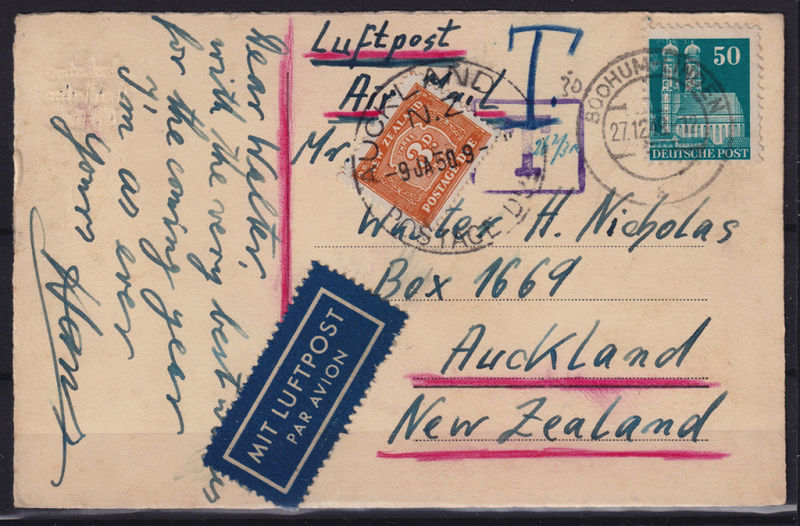 Dear Walter,
with the very best
for the coming year
I'm as ever
Yours
Hans
Luftpost
Air Mail
Mr.
Walter H. Nicholas
Box 1669
Auckland
New Zealand
T.
T
50
DEUTSCHE POST
BOCHUM
27.12
AUCKLAND
N.Z.
-9 JA 50.9-
POSTAGE DUE
ZEALAND
3D
POSTAGE
MIT LUFTPOST
PAR AVION